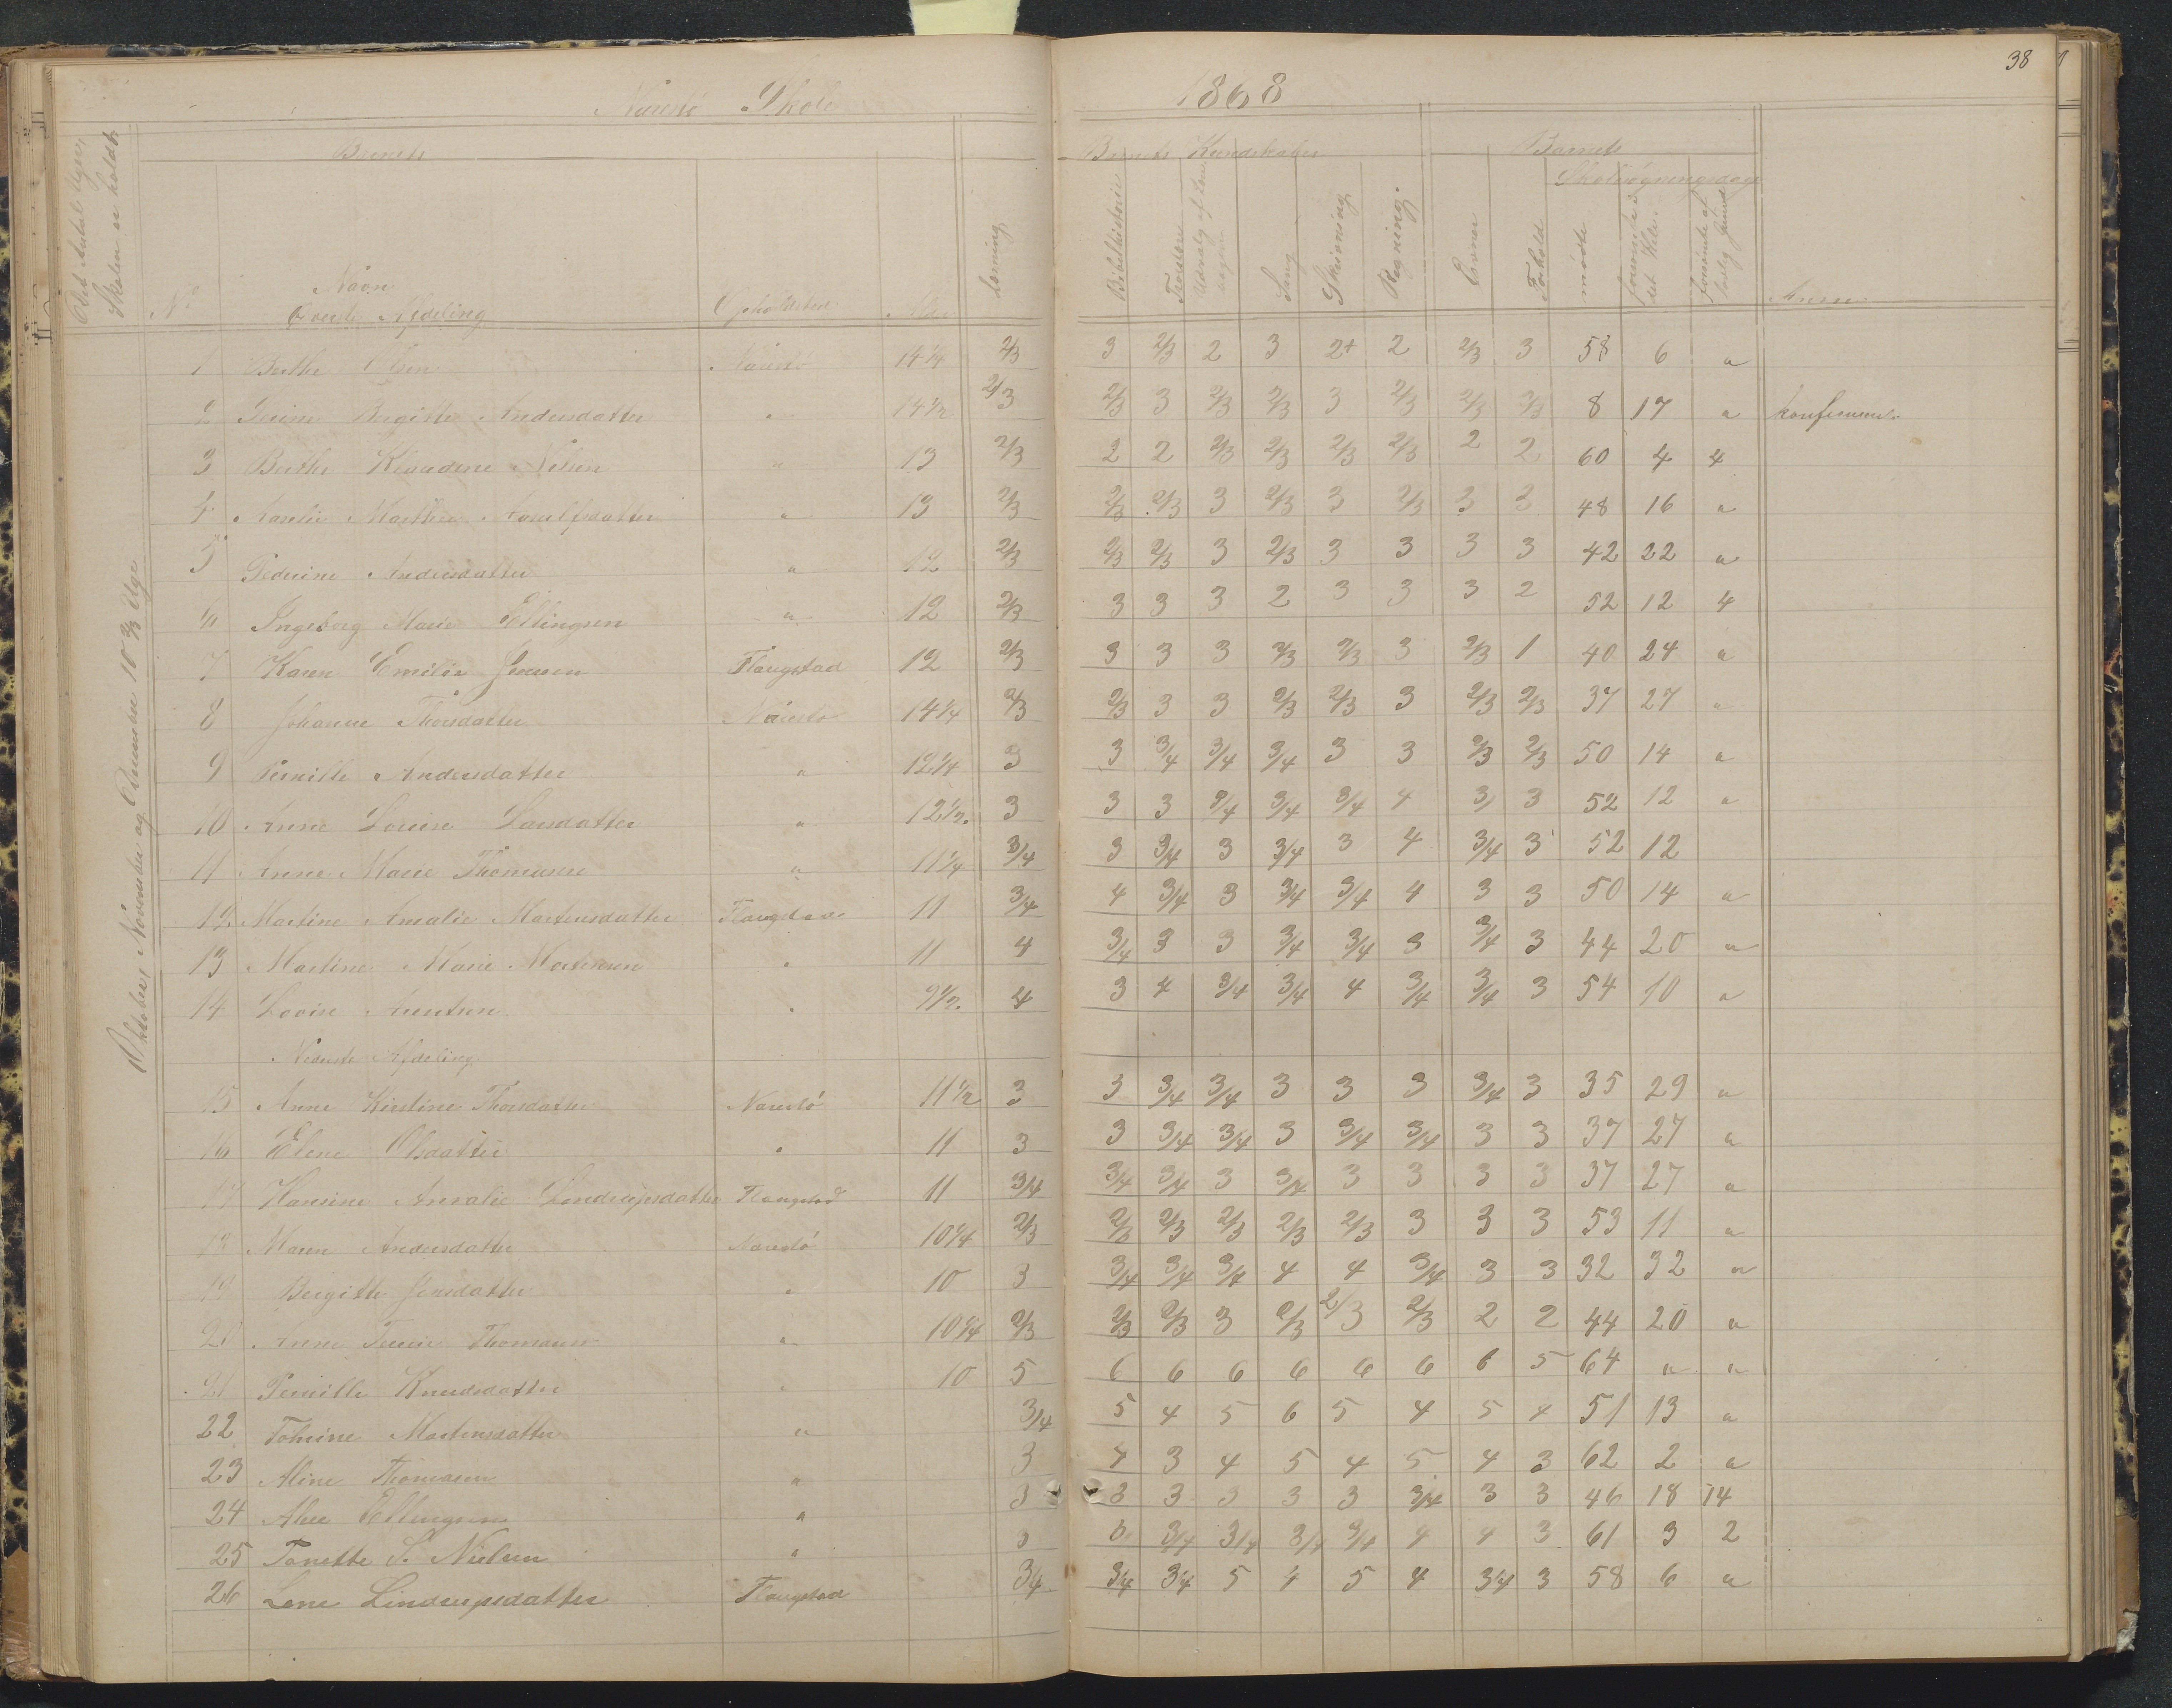 38
Naresø Skole 1868
Det Antal Uger, Skolen er holdt
Barnets
Barnets Kundskaber
Barnets
Skolesøgningsdage
No
Navn
Opholdsted
Alder
Læsning
Bibelhistorie
Troeslære
Udvalg af Læsebogen
Sang
Skrivning
Regning.
Evner
Forhold
mødte
forsømte i det Hele.
forsømte af lovlig Grund
Anm.
Øverste Afdeling
Oktober, November og December 10 2/3 Uge
1 Berthe Olsen Naresø 14 1/4 2/3 3 2/3 2 3 2+ 2 2/3 3 58 6 "
2 Birgitte Andersdatter " 14 1/2 2/3 2/3 3 2/3 2/3 3 2/3 2/3 2/3 8 17 "
3 Berthe Klaudine Nilsen " 13 2/3 2 2 2/3 2/3 2/3 2/3 2 2 60 4 4
4 Marthea " 13 2/3 2/3 2/3 3 2/3 3 2/3 3 3 48 16 "
5 Pedrine Andersdatter " 12 2/3 2/3 2/3 3 2/3 3 3 3 3 42 22 "
6 Ingeborg Marie Ellingsen " 12 2/3 3 3 3 2 3 3 3 2 52 12 4
7 Karen Emilie Jensen Flangstad 12 2/3 3 3 3 2/3 2/3 3 2/3 1 40 24 "
8 Johanne Thorsdatter Naresø 14 1/4 2/3 2/3 3 3 2/3 2/3 3 2/3 2/3 37 27 "
9 Pernille Andersdatter " 12 1/4 3 3 3/4 3/4 3/4 3 3 2/3 2/3 50 14 "
10 Anne Lovise Larsdatter " 12 1/2 3 3 3 3/4 3/4 3/4 4 3 3 52 12 "
11 Anne Marie Thomassen " 11 1/4 3/4 3 3/4 3 3/4 3 4 3/4 3 52 12
12 Martine Amalie Mortensdatter Flangstad 11 3/4 4 3/4 3 3/4 3/4 4 3 3 50 14 "
13 Martine Marie Mortensen " 11 4 3/4 3 3 3/4 3/4 3 3/4 3 44 20 "
14 Lovise " 9 1/2 4 3 4 3/4 3/4 4 3/4 3/4 3 54 10 "
Nederste Afdeling
15 Anne Kirstine Thorsdatter Naresø 11 1/2 3 3 3/4 3/4 3 3 3 3/4 3 35 29 "
16 Elene Olsdatter " 11 3 3 3/4 3/4 3 3/4 3/4 3 3 37 27 "
17 Hansine Amalie Lindrupsdatter Flangstad 11 3/4 3/4 3/4 3 3/4 3 3 3 3 37 27 "
18 Maren Andersdatter Naresø 10 1/4 2/3 2/3 2/3 2/3 2/3 2/3 3 3 3 53 11 "
19 Birgitte Jensdatter " 10 3 3/4 3/4 3/4 4 4 3/4 3 3 32 32 "
20 Anne Thomassen " 10 1/4 2/3 2/3 2/3 3 2/3 2/3 2/3 2 2 44 20 "
21 Pernille Knudsdatter " 10 5 6 6 6 6 6 6 6 5 64 " "
22 Mortensdatter " 3/4 5 4 5 6 5 4 5 4 51 13 "
23 Aline Thomassen " 3 4 3 4 5 4 5 4 3 62 2 "
24 Ellingsen " 3 3 3 3 3 3 3/4 3 3 46 18 14
25 Tanette S. Nielsen " 3 3/4 3/4 3/4 3/4 4 4 3 61 3 2
26 Lene Lindrupsdatter Flangstad 3/4 3/4 3/4 5 4 5 4 3/4 3 58 6 "